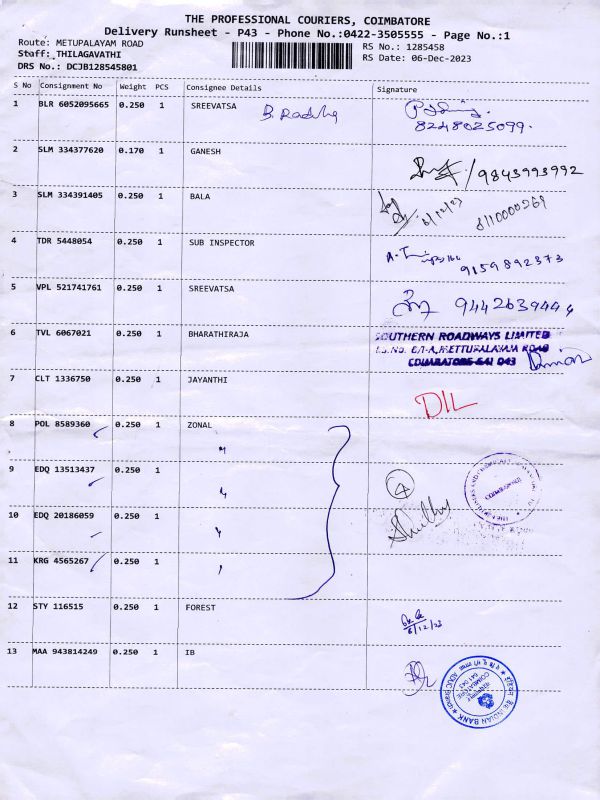 THE PROFESSIONAL COURIERS, COIMBATORE
Delivery Runsheet - P43 - Phone No.:0422-3505555 - Page No.:1
Route: METUPALAYAM ROAD
RS No.: 1285458
Staff: THILAGAVATHI
RS Date: 06-Dec-2023
DRS No.: DCJB128545801
S No Consignment No Weight PCS Consignee Details Signature
1 BLR 6052095665 0.250 1 SREEVATSA
8248025099.
2 SLM 334377620 0.170 1 GANESH
/9843993992
3 SLM 334391405 0.250 1 BALA
6/12/23
4 TDR 5448054 0.250 1 SUB INSPECTOR
9159892373
5 VPL 521741761 0.250 1 SREEVATSA
9442639444
6 TVL 6067021 0.250 1 BHARATHIRAJA
SOUTHERN ROADWAYS LIMITED
METTUPALAYAM ROAD
COIMBATORE-641 043
7 CLT 1336750 0.250 1 JAYANTHI
DIL
8 POL 8589360 0.250 1 ZONAL
9 EDQ 13513437 0.250 1
4
COIMBATORE
10 EDQ 20186059 0.250 1
11 KRG 4565267 0.250 1
12 STY 116515 0.250 1 FOREST
6/12/23
13 MAA 943814249 0.250 1 IB
INDIAN BANK
COIMBATORE
641 043